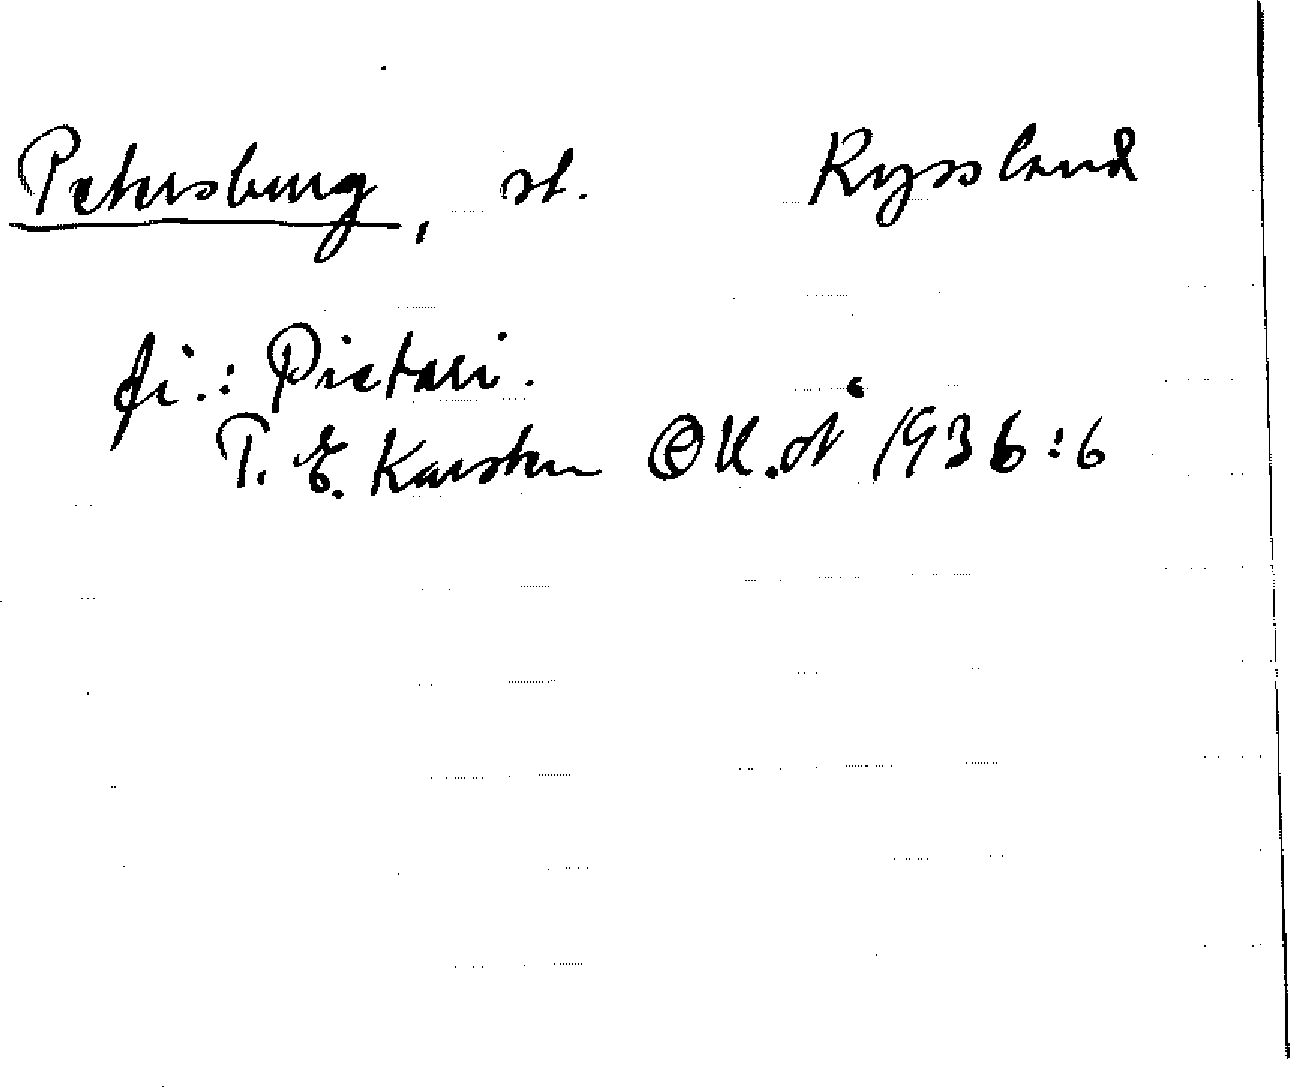 Petersburg, st. Ryssland
fi.: Pietari.
T. E. Karsten 1936:6